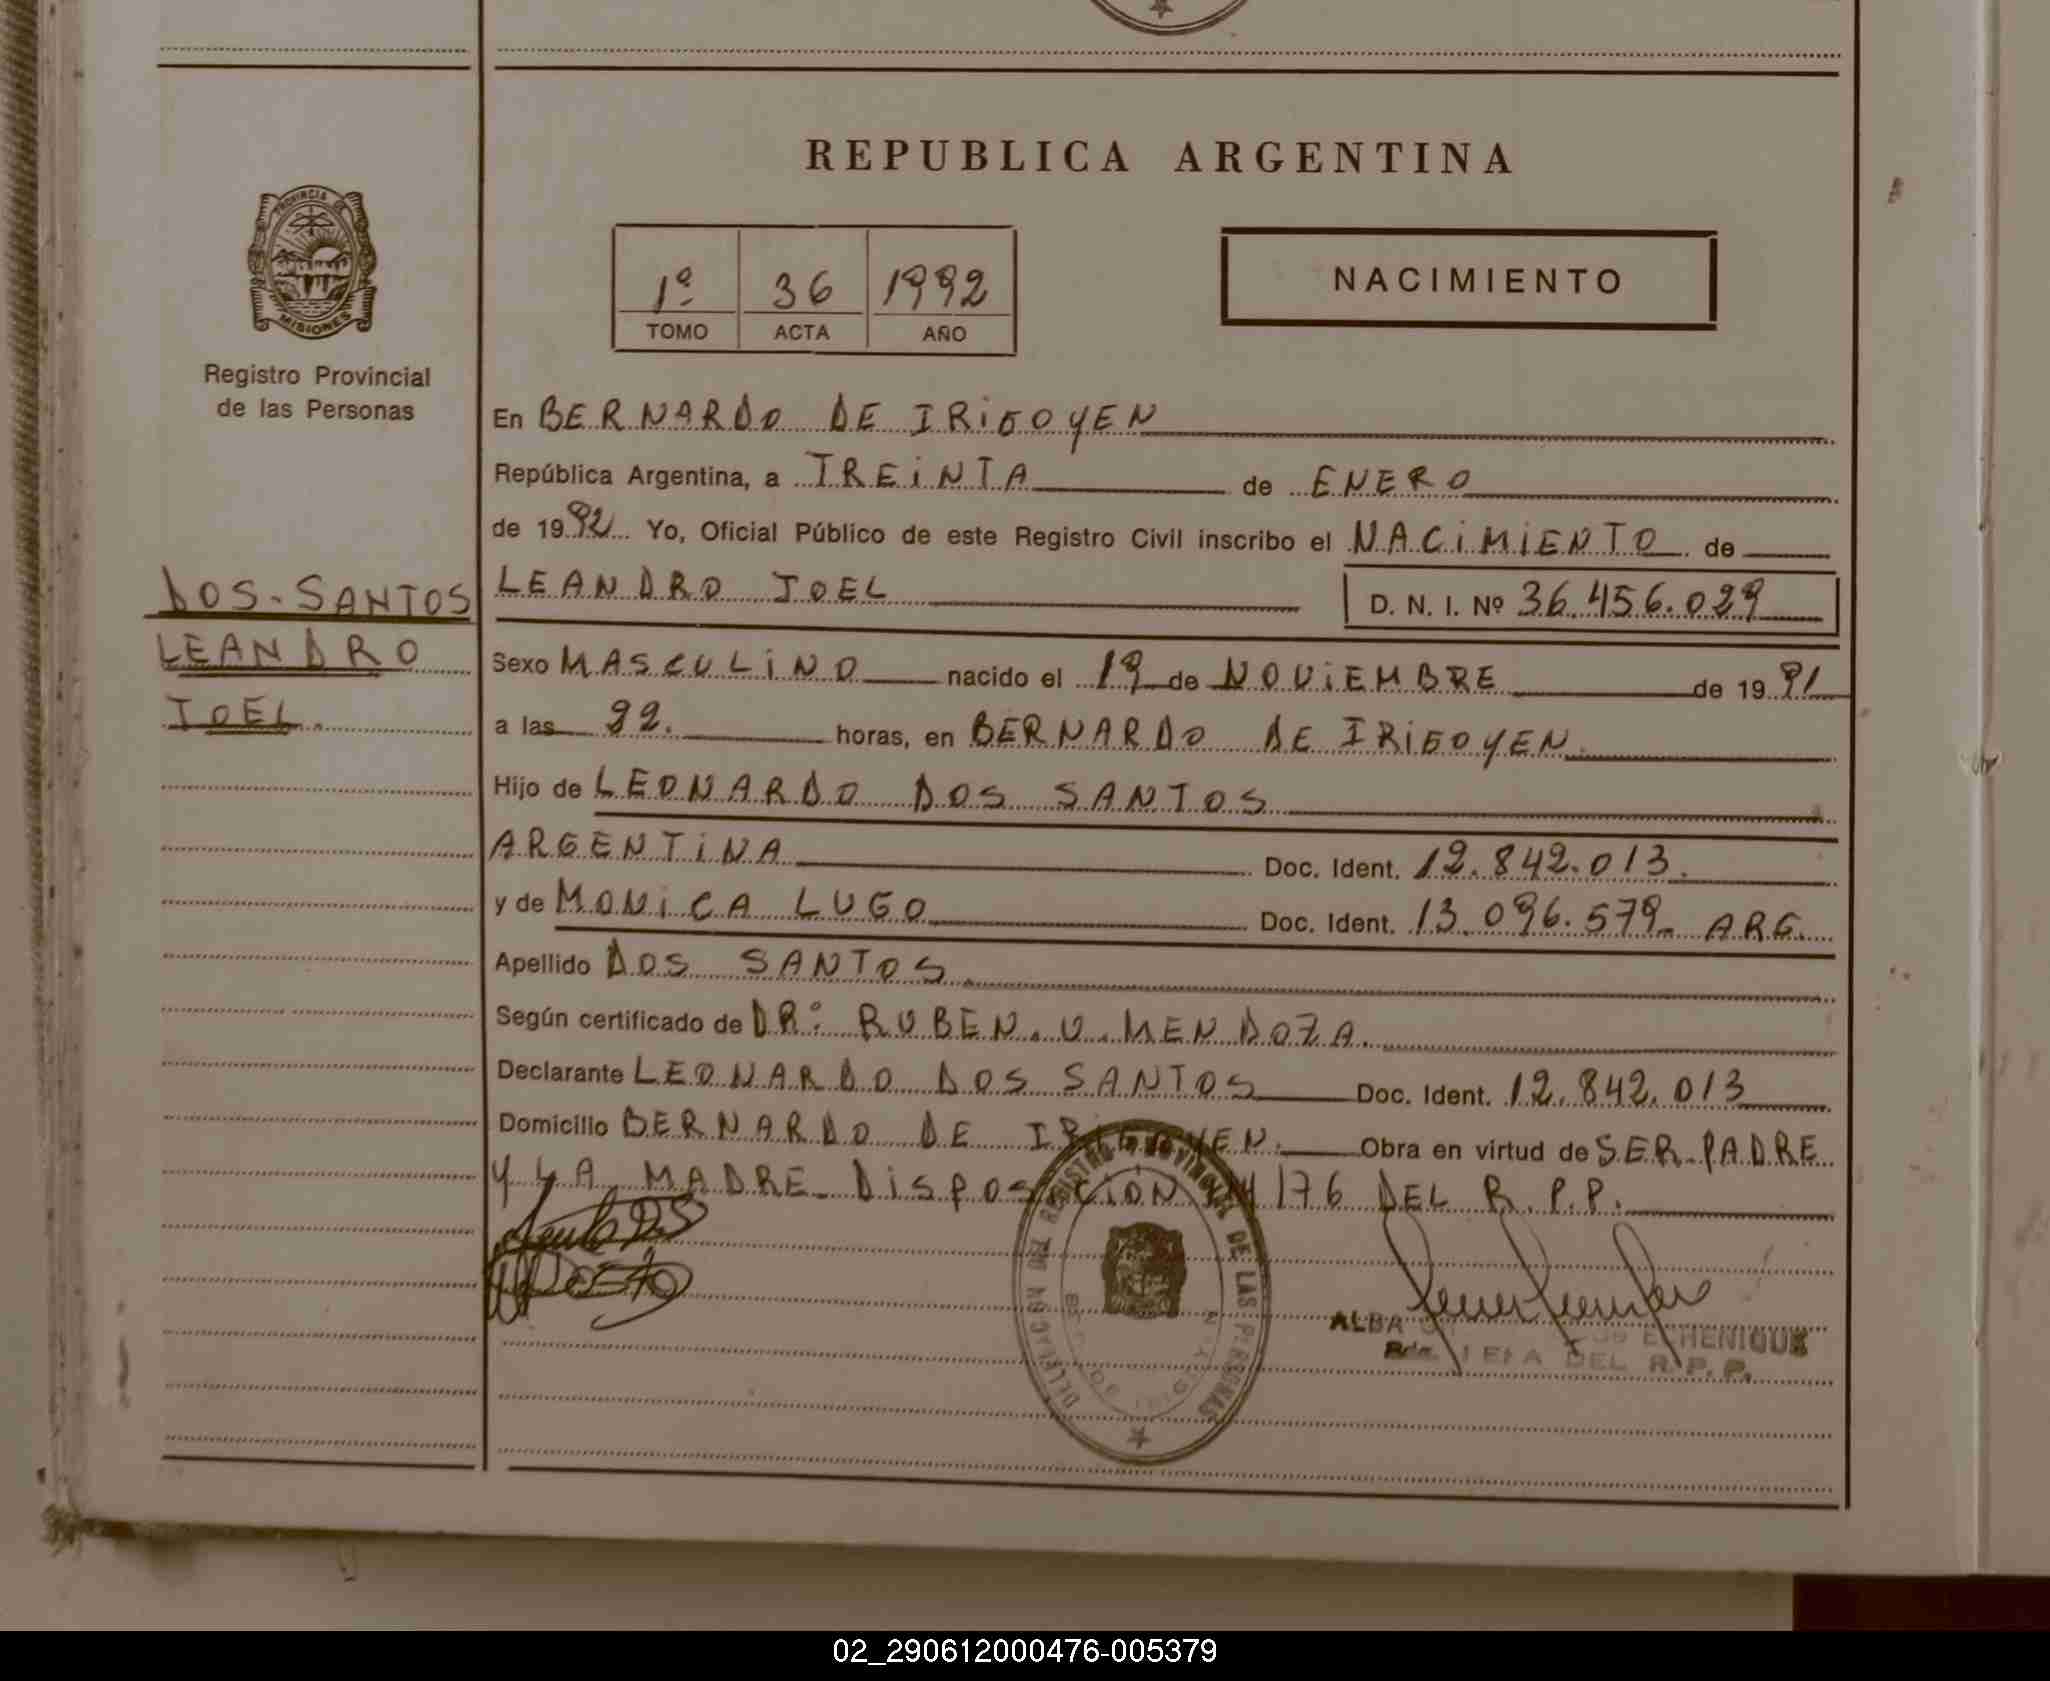 REPUBLICA ARGENTINA
PROVINCIA DE
MISIONES
1º 36 1992
TOMO ACTA AÑO
NACIMIENTO
Registro Provincial
de las Personas
En BERNARDO DE IRIGOYEN
República Argentina, a TREINTA de ENERO
de 1992 Yo, Oficial Público de este Registro Civil inscribo el NACIMIENTO de
DOS-SANTOS
LEANDRO
JOEL.
LEANDRO JOEL D. N. I. Nº 36.456.029
Sexo MASCULINO nacido el 19 de NOVIEMBRE de 1991
a las 22. horas, en BERNARDO DE IRIGOYEN.
Hijo de LEONARDO DOS SANTOS
ARGENTINA Doc. Ident. 12.842.013.
y de MONICA LUGO Doc. Ident. 13.096.579- ARG.
Apellido DOS SANTOS.
Según certificado de DR: RUBEN.U.MENDOZA.
Declarante LEONARDO DOS SANTOS Doc. Ident. 12.842.013
Domicilio BERNARDO DE IRIGOYEN. Obra en virtud de SER-PADRE
Y LA MADRE- DISPOSICION /76 DEL R.P.P.
DELEGACION DEL REGISTRO PROVINCIAL DE LAS PERSONAS
ALBA DE ECHENIQUE
JEFA DEL R.P.P.
02_290612000476-005379